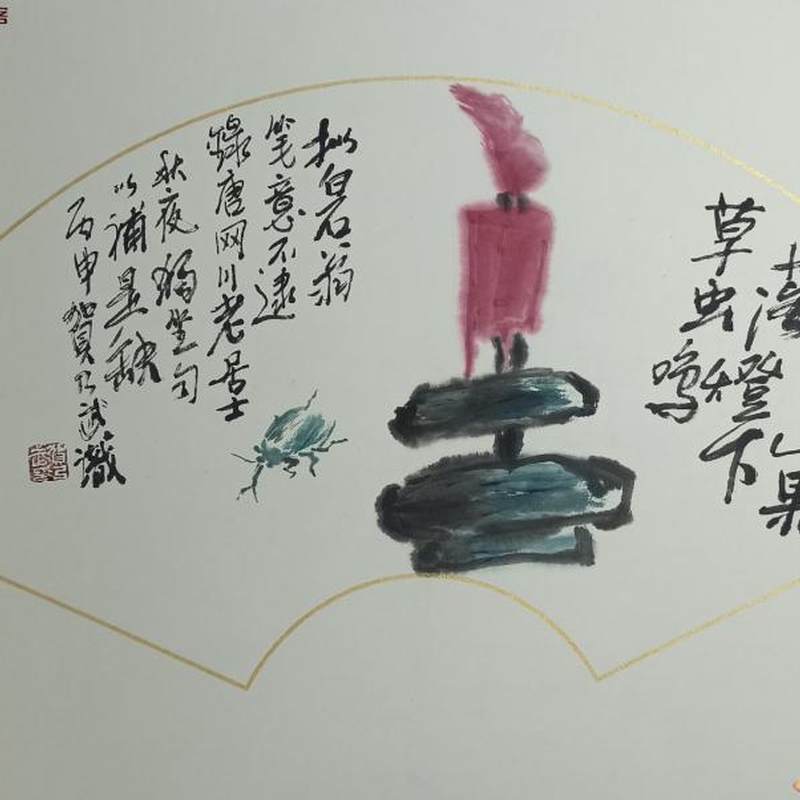 果
落燈下
草虫鳴
拟白石翁
笔意不逮
録唐网川老居士
秋夜獨坐句
以補是缺
丙申賀乃武識